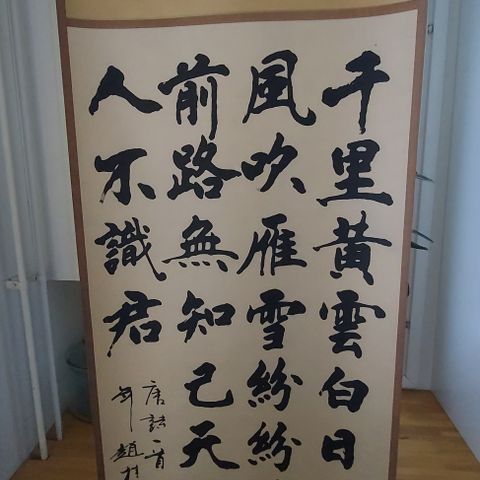 千里黃雲白日
風吹雁雪紛紛
前路無知己天
人不識君
唐詩一首